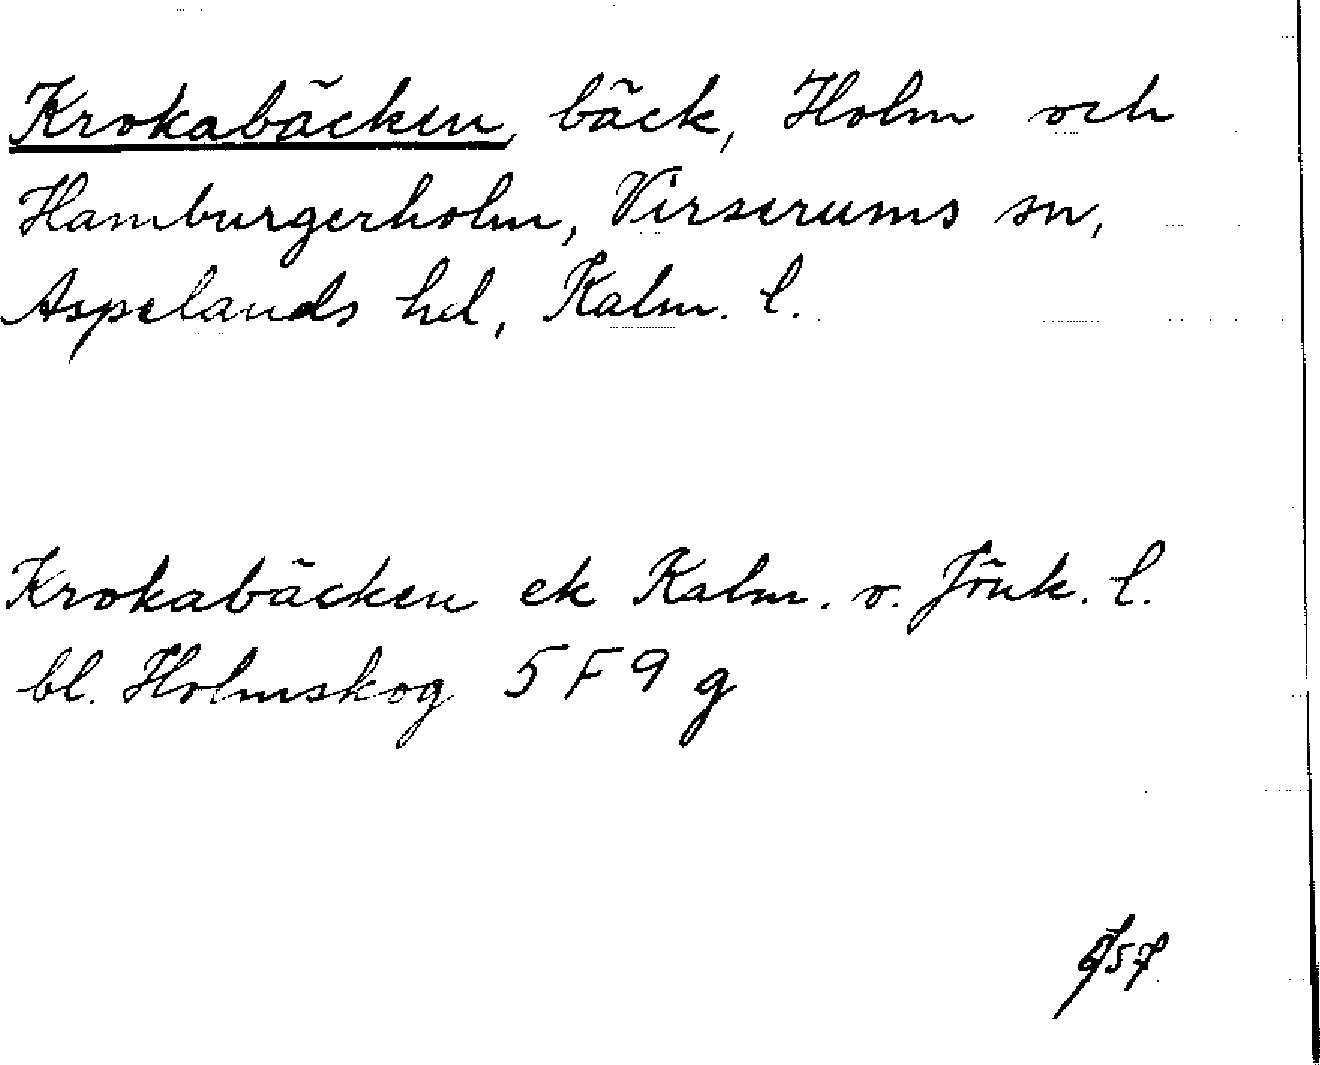 Krokabäcken, bäck, Holm och
Hamburgerholm, Virserums sn,
Aspelands hd, Kalm. l.
Krokabäcken ek Kalm. o. Jönk. l.
bl. Holmskog 5F9g